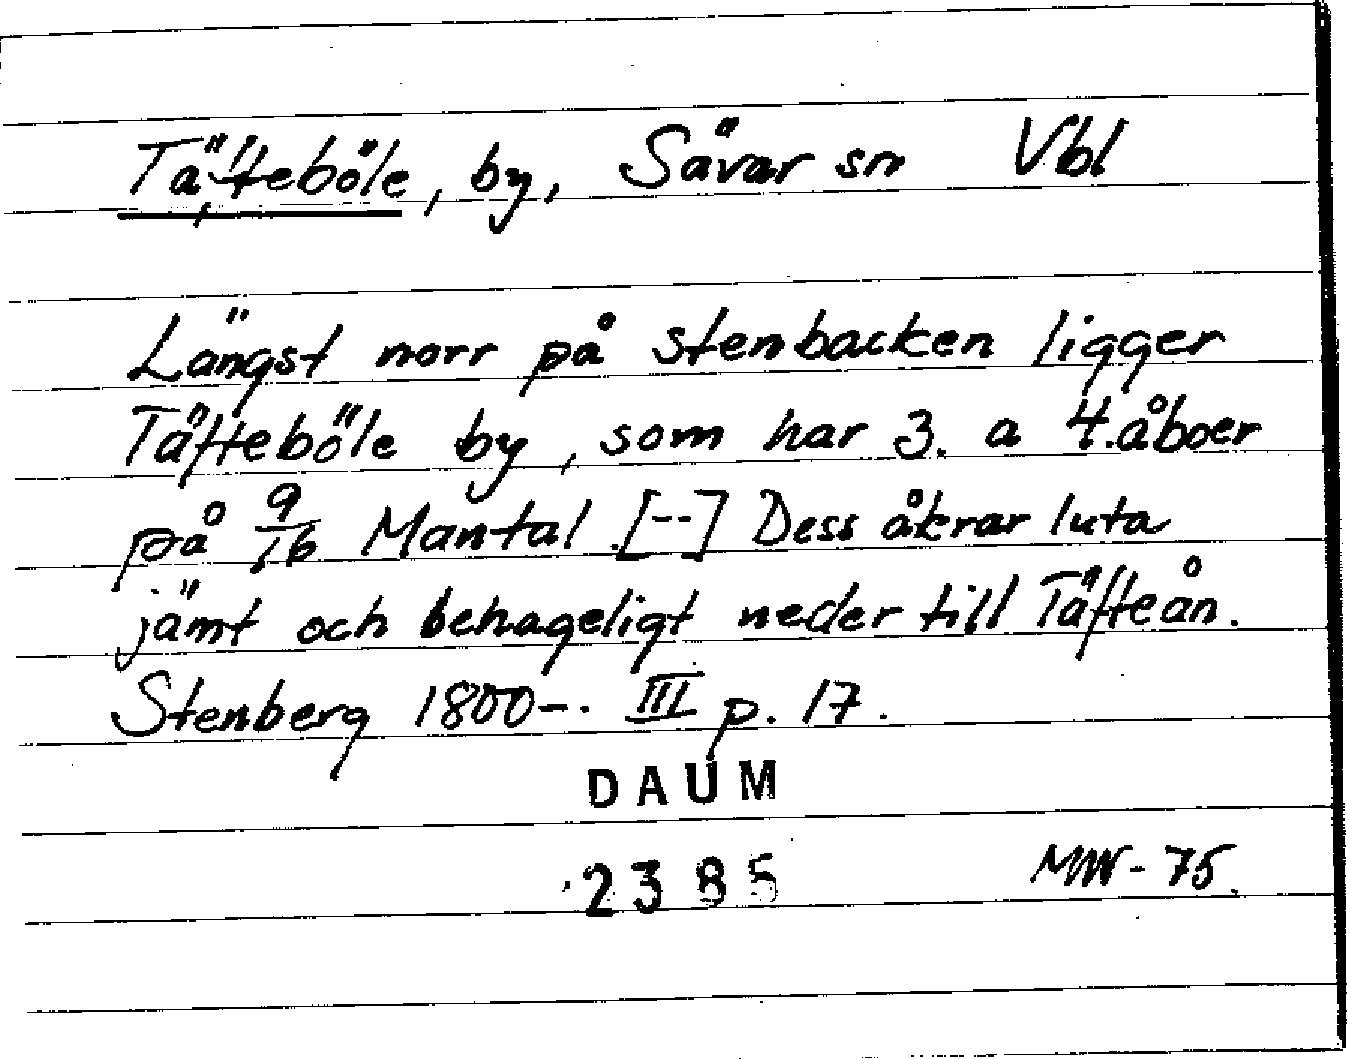 Täfteböle, by, Sävar sn Vbl
Längst norr på stenbacken ligger
Täfteböle by, som har 3. a 4. åboer
på 9/16 Mantal [--] Dess åkrar luta
jämt och behageligt neder till Täfteån.
Stenberg 1800-. III p. 17.
DAUM
2385 MW-75.